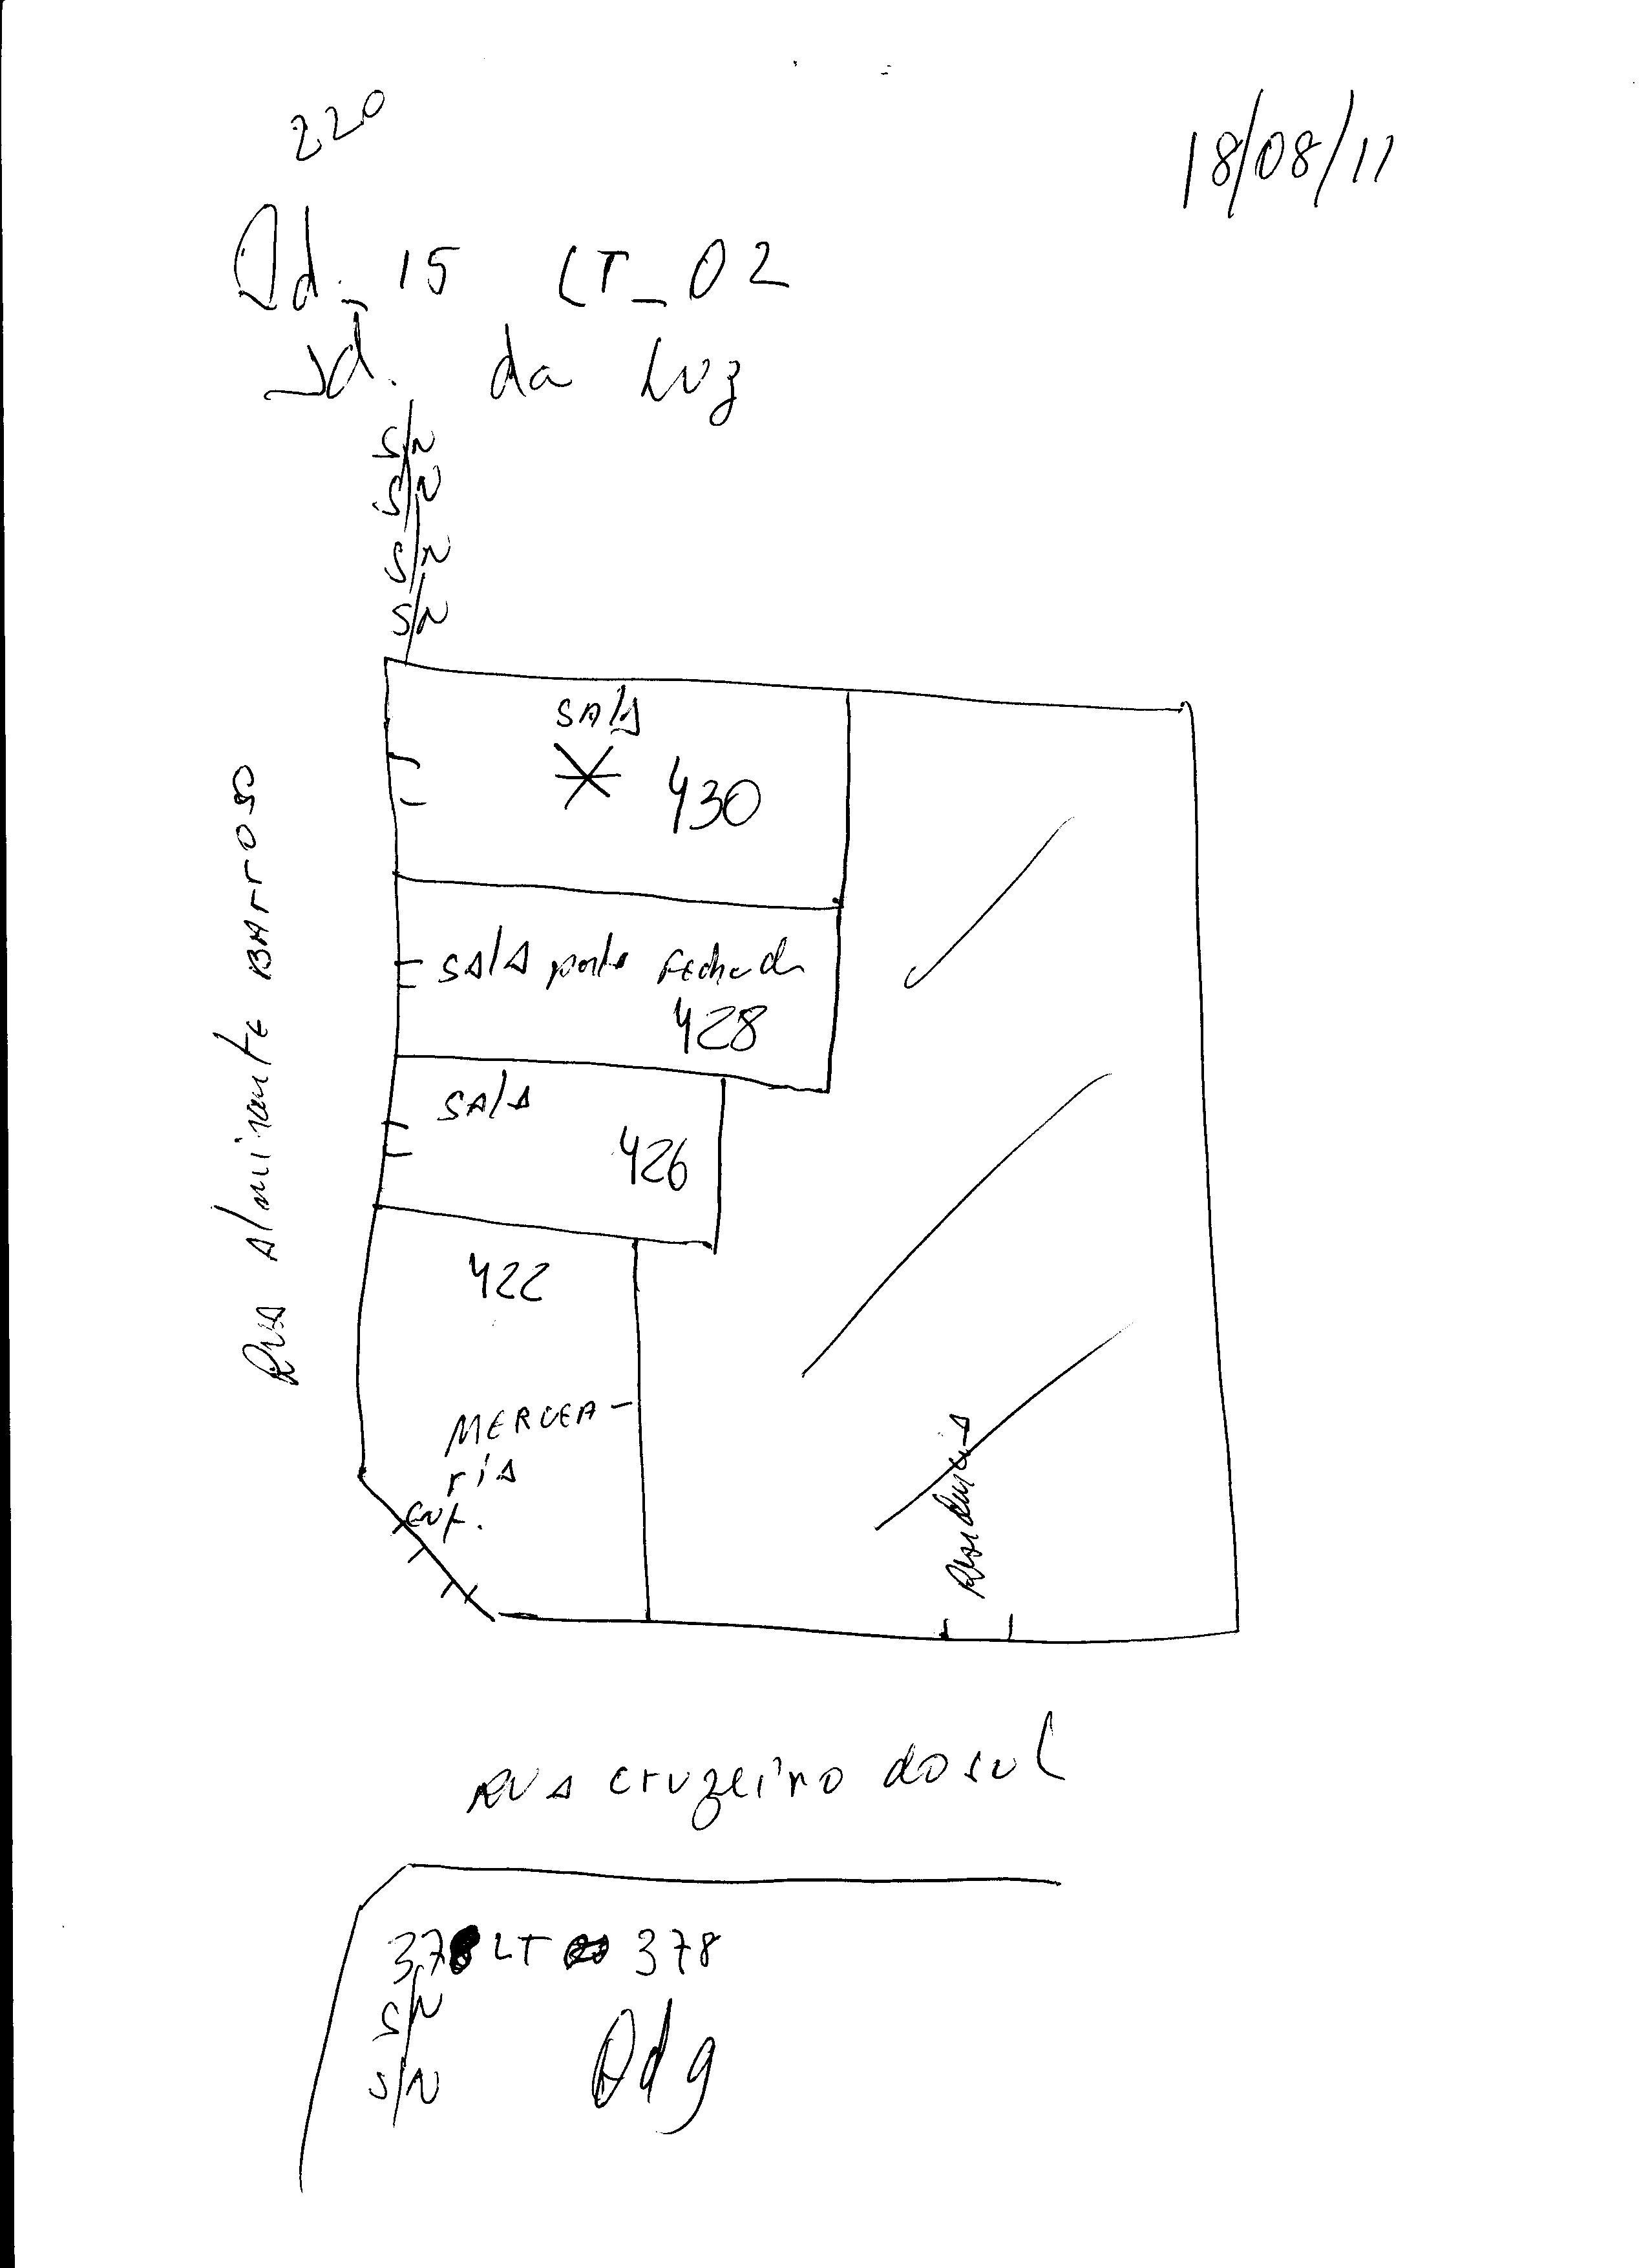 220
18/08/11
Qd. 15 LT_02
Jd. da Luz
S/N
S/N
S/N
S/N
SALA
430
SALA porta fechada
428
SALA
426
422
MERCEA-
ria
ent.
Residencia
RUA Almirante BArroso
RUA cruzeiro do sul
378 LT 378
S/N
S/N
Qd 9